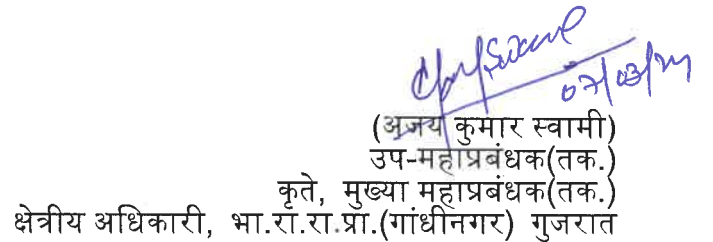 07/03/24
(अजय कुमार स्वामी)
उप-महाप्रबंधक(तक.)
कृते, मुख्या महाप्रबंधक(तक.)
क्षेत्रीय अधिकारी, भा.रा.रा.प्रा.(गांधीनगर) गुजरात